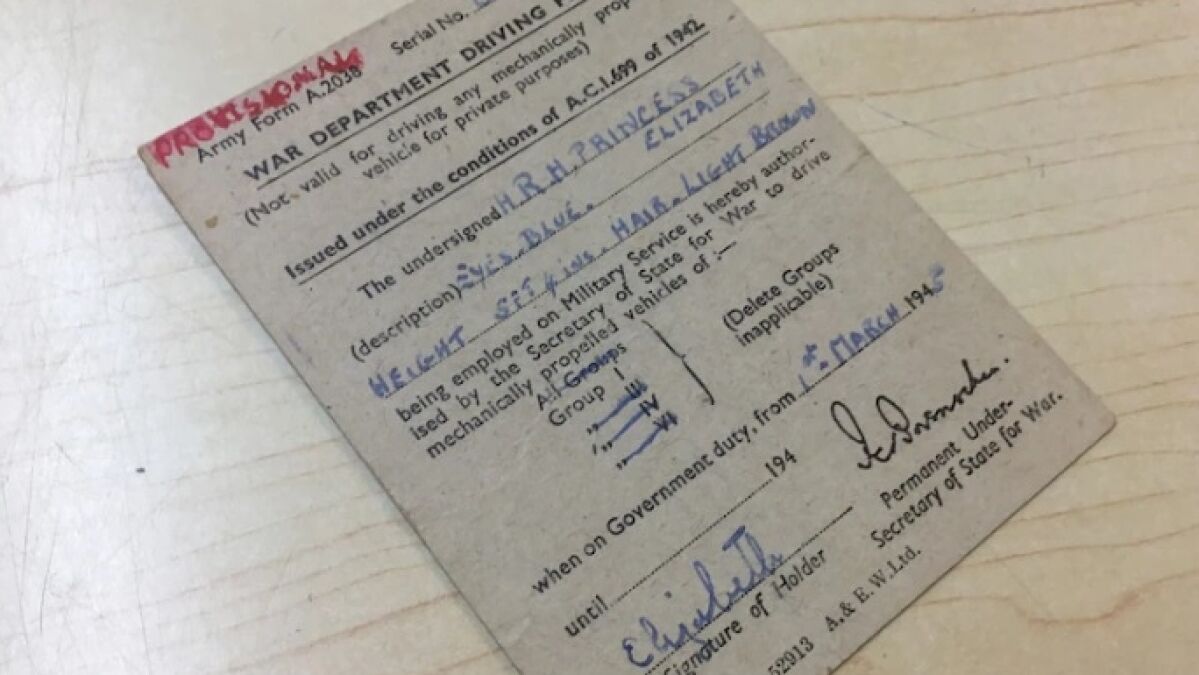 PROVISIONAL
Army Form A.2038
Serial No.
WAR DEPARTMENT DRIVING
(Not valid for driving any mechanically
vehicle for private purposes)
Issued under the conditions of A.C.I.699 of 1942
The undersigned H.R.H. PRINCESS
ELIZABETH
(description) EYES. BLUE. HAIR. LIGHT BROWN
HEIGHT 5FT 4 INS.
being employed on Military Service is hereby author-
ised by the Secretary of State for War to drive
mechanically propelled vehicles of :—
All Groups
Group I
„ III
„ IV
„ VI
(Delete Groups
inapplicable)
when on Government duty, from 1st MARCH 1945
until 194
Elizabeth
Signature of Holder
Permanent Under-
Secretary of State for War.
52913 A. & E.W.Ltd.